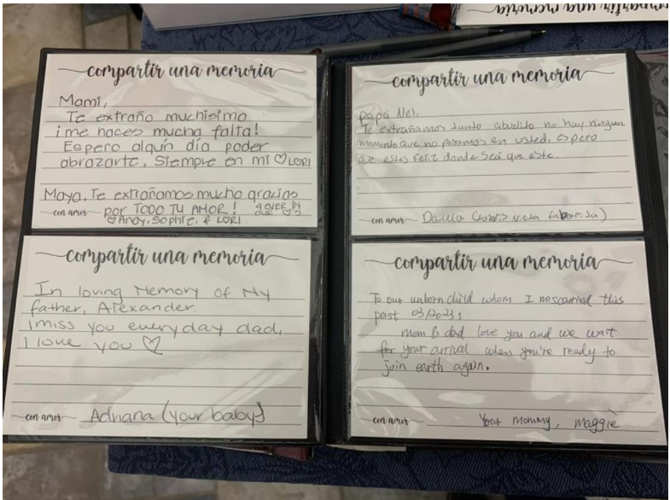 compartir una memoria
compartir una memoria
Mami,
Te extraño muchisimo
¡me haces mucha falta!
Espero algún día poder
abrazarte. Siempre en mi ♡ LORI
Maya, Te extrañamos mucho gracias
por TODO TU AMOR!
con amor
♡ Andy, Sophie, & LORI
compartir una memoria
Papa Nel,
Te extrañamos tanto abuelito no hay ningun
momento que no pensamos en usted, espero
que este feliz donde sea que este.
con amor Daniela
compartir una memoria
In loving Memory of My
father, Alexander.
I miss you everyday dad,
I love you ♡
con amor Adriana (your baby)
compartir una memoria
To our unborn child whom I miscarried this
past 03/2023:
mom & dad love you and we wait
for your arrival when you're ready to
join earth again.
con amor Your mommy, maggie